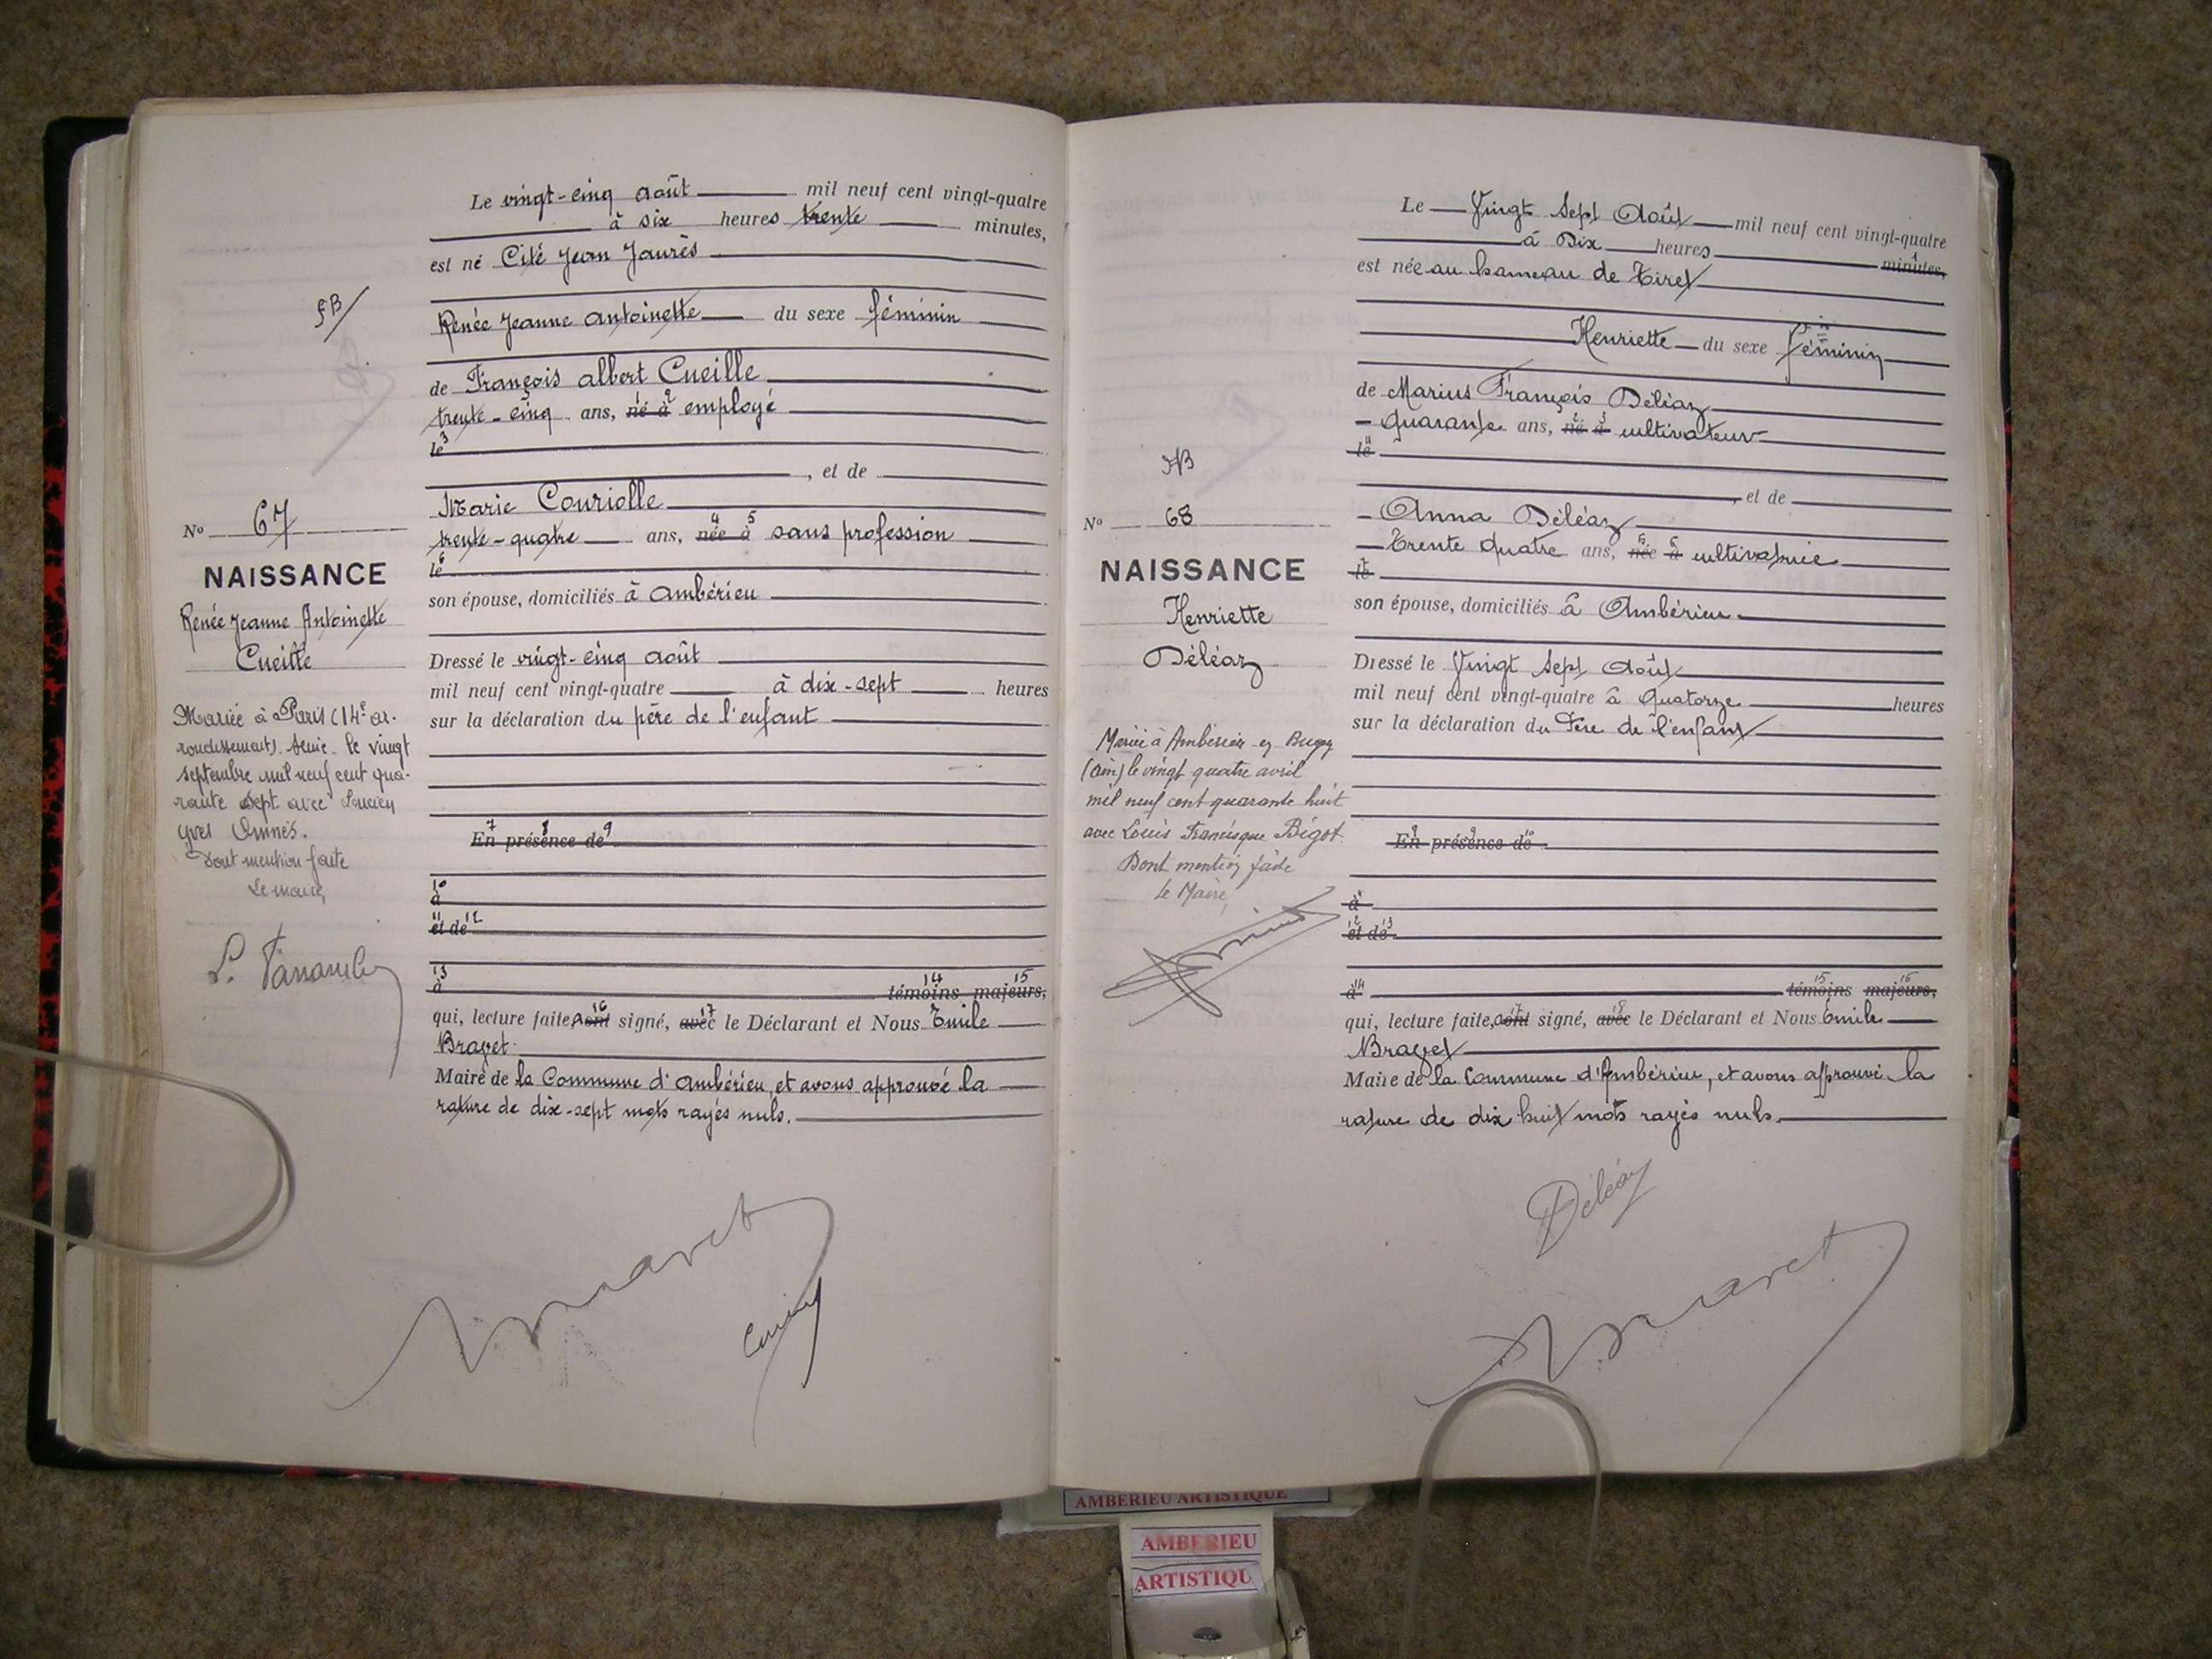 Le vingt-cinq août mil neuf cent vingt-quatre
à six heures trente minutes,
est né Cité Jean Jaurès
Renée Jeanne Antoinette du sexe féminin
de François Albert Cueille
trente-cinq ans, né à employé
le
, et de
Marie Couriolle
trente-quatre ans, née à sans profession
le
son épouse, domiciliés à Ambérieu
Dressé le vingt-cinq août
mil neuf cent vingt-quatre à dix-sept heures
sur la déclaration du père de l'enfant
En présence de
à
et de
à témoins majeurs,
qui, lecture faite, ont signé, avec le Déclarant et Nous Emile
Maire de la Commune d'Ambérieu, et avons approuvé la
rature de dix-sept mots rayés nuls.
No 67
NAISSANCE
Renée Jeanne Antoinette
Cueille
Mariée à Paris (14e ar-
rondissement) Seine le vingt
septembre mil neuf cent qua-
rante sept avec
Yves
Dont mention faite
Le maire,
Le Vingt Sept Août mil neuf cent vingt-quatre
à Dix heures minutes,
est née au hameau de Tiret
Henriette du sexe féminin
de Marius François Déléaz
Quarante ans, né à cultivateur
le
, et de
Anna Déléaz
Trente Quatre ans, née à cultivatrice
le
son épouse, domiciliés à Ambérieu
Dressé le Vingt Sept Août
mil neuf cent vingt-quatre à Quatorze heures
sur la déclaration du Père de l'enfant
En présence de
à
et de
à témoins majeurs,
qui, lecture faite, ont signé, avec le Déclarant et Nous Emile
Maire de la Commune d'Ambérieu, et avons approuvé la
rature de dix huit mots rayés nuls.
No 68
NAISSANCE
Henriette
Déléaz
Mariée à Ambérieu en Bugey
(Ain) le vingt quatre avril
mil neuf cent quarante huit
avec Louis Francisque Bigot
Dont mention faite
le Maire,
Déléaz
AMBERIEU ARTISTIQUE
AMBERIEU
ARTISTIQU